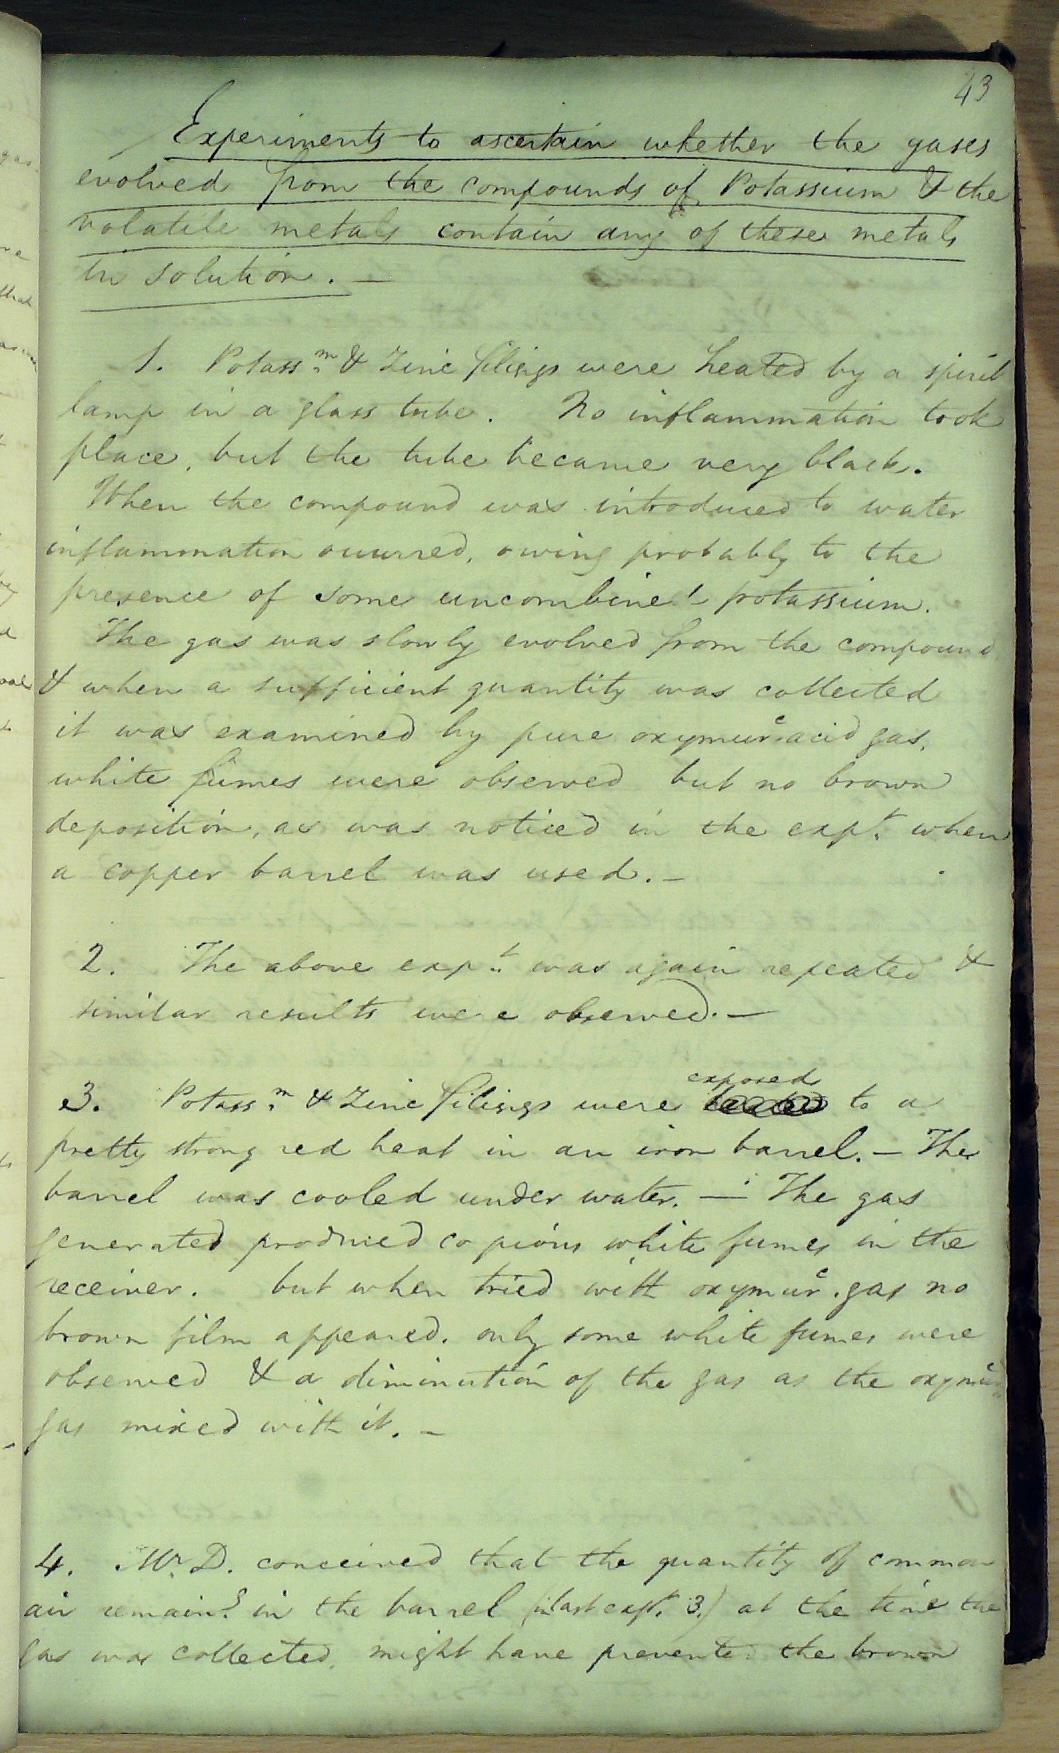 43
Experiments to ascertain whether the gases
evolved from the compounds of Potassium & the
volatile metals contain any of these metals
in solution. —
1. Potassm. & Zinc filings were heated by a spirit
lamp in a glass tube. No inflammation took
place, but the tube became very black.
When the compound was introduced to water
inflammation occurred, owing probably to the
presence of some uncombined potassium.
The gas was slowly evolved from the compound
& when a sufficient quantity was collected
it was examined by pure oxymurc. acid gas,
white fumes were observed but no brown
deposition, as was noticed in the expt. when
a copper barrel was used. —
2. The above expt. was again repeated &
similar results were observed. —
exposed
3. Potassm. & Zinc filings were heated to a
pretty strong red heat in an iron barrel. — The
barrel was cooled under water. — The gas
generated produced copious white fumes in the
receiver. but when tried with oxymurc. gas no
brown film appeared. only some white fumes were
observed & a diminution of the gas as the oxymur
gas mixed with it. —
4. Mr. D. conceived that the quantity of common
air remaing. in the barrel (in last expt. 3.) at the time the
gas was collected, might have prevented the brown